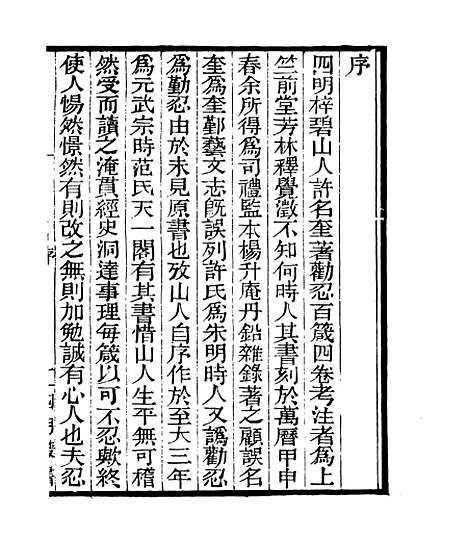 序
四明梓碧山人許名奎著勸忍百箴四卷考注者爲上
竺前堂芳林釋覺澂不知何時人其書刻於萬曆甲申
春余所得爲司禮監本楊升庵丹鉛雜錄著之顧誤名
奎爲奎鄞藝文志旣誤列許氏爲朱明時人又譌勸忍
爲勤忍由於未見原書也攷山人自序作於至大三年
爲元武宗時范氏天一閣有其書惜山人生平無可稽
然受而讀之淹貫經史洞達事理每箴以可不忍歟終
使人惕然憬然有則改之無則加勉誠有心人也夫忍
序